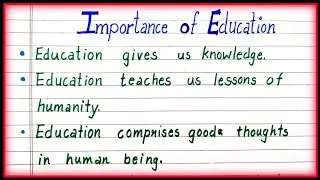 Importance of Education
• Education gives us knowledge.
• Education teaches us lessons of
humanity.
• Education comprises good thoughts
in human being.